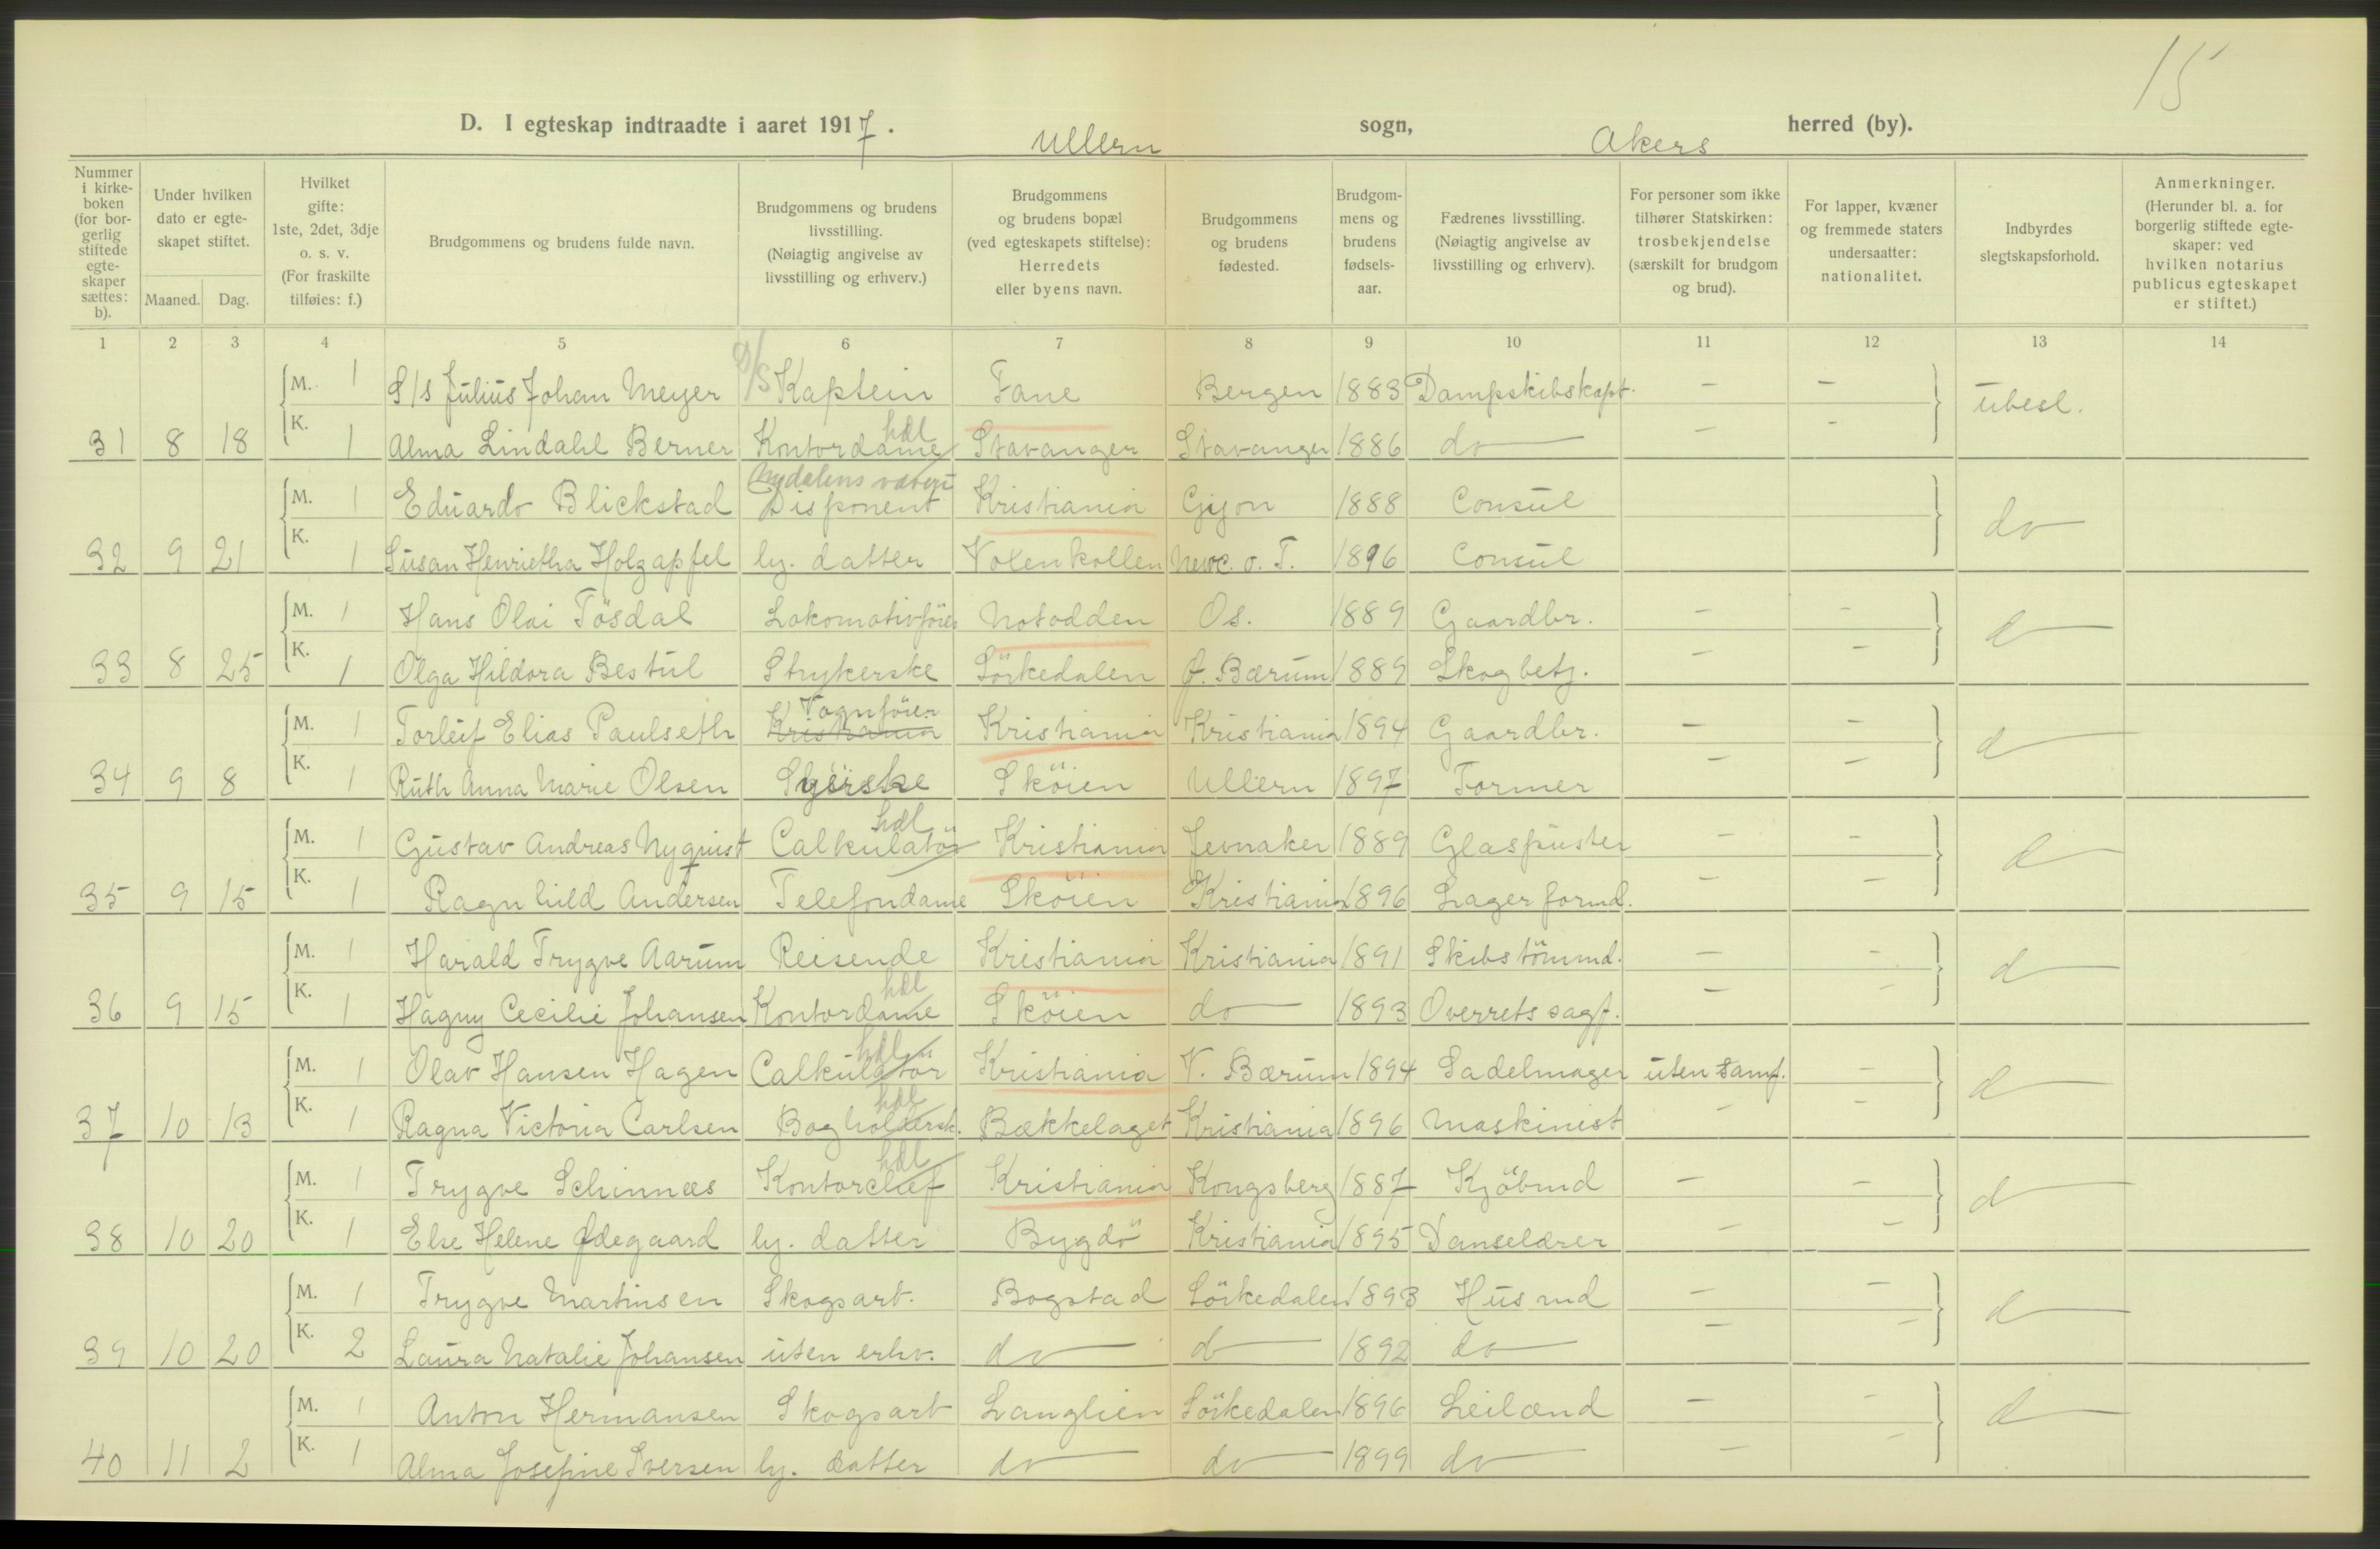 15
D. I egteskap indtraadte i aaret 1917. Ullern sogn, Akers herred (by).
Nummer i kirkeboken (for borgerlig stiftede egteskaper sættes: b).
Under hvilken dato er egteskapet stiftet.
Maaned. Dag.
Hvilket gifte: 1ste, 2det, 3dje o. s. v. (For fraskilte tilføies: f.)
Brudgommens og brudens fulde navn.
Brudgommens og brudens livsstilling. (Nøiagtig angivelse av livsstilling og erhverv.)
Brudgommens og brudens bopæl (ved egteskapets stiftelse): Herredets eller byens navn.
Brudgommens og brudens fødested.
Brudgommens og brudens fødselsaar.
Fædrenes livsstilling. (Nøiagtig angivelse av livsstilling og erhverv).
For personer som ikke tilhører Statskirken: trosbekjendelse (særskilt for brudgom og brud).
For lapper, kvæner og fremmede staters undersaatter: nationalitet.
Indbyrdes slegtskapsforhold.
Anmerkninger. (Herunder bl. a. for borgerlig stiftede egteskaper: ved hvilken notarius publicus egteskapet er stiftet.)
1 2 3 4 5 6 7 8 9 10 11 12 13 14
M. 1 S/s Julius Johan Meyer D/S Kaptein Fane Bergen 1883 Dampskibskapt. - - ubesl.
31 8 18 K. 1 Alma Lindahl Berner Kontordame hdl Stavanger Stavanger 1886 do - -
M. 1 Eduardo Blickstad Nydalens væveri Disponent Kristiania Gijon 1888 Consul do
32 9 21 K. 1 Susan Henrietha Holzapfel hj. datter Voxenkollen Newc. o. T. 1896 Consul
M. 1 Hans Olai Tösdal Lokomotivförer Notodden Os. 1889 Gaardbr. - - d
33 8 25 K. 1 Olga Hildora Bestul Strykerske Sörkedalen Ø. Bærum 1889 Skogbetj. - -
M. 1 Torleif Elias Paulseth Kristiania Vognförer Kristiania Kristiania 1894 Gaardbr. - - d
34 9 8 K. 1 Ruth Anna Marie Olsen Syerske Sköien Ullern 1897 Former - -
M. 1 Gustav Andreas Nyquist Calkulatör hdl Kristiania Jevnaker 1889 Glaspuster - - d
35 9 15 K. 1 Ragnhild Andersen Telefondame Sköien Kristiania 1896 Lagerformd. - -
M. 1 Harald Trygve Aarum Reisende Kristiania Kristiania 1891 Skibstömmd. - - d
36 9 15 K. 1 Hagny Cecilie Johansen Kontordame hdl Sköien do 1893 Overretssagf. - -
M. 1 Olav Hansen Hagen Calkulatör hdl Kristiania V. Bærum 1894 Sadelmager uten samf. - d
37 10 13 K. 1 Ragna Victoria Carlsen Bogholdersk. hdl Bækkelaget Kristiania 1896 Maskinist - -
M. 1 Trygve Schinnæs Kontorchef hdl Kristiania Kongsberg 1887 Kjöbmd - - d
38 10 20 K. 1 Else Helene Ødegaard hj. datter Bygdö Kristiania 1895 Danselærer - -
M. 1 Trygve Martinsen Skogsarb. Bogstad Sörkedalen 1893 Husmd - - d
39 10 20 K. 2 Laura Natalie Johansen uten erhv. do d 1892 do - -
M. 1 Anton Hermansen Skogsarb Langlien Sörkedalen 1896 Leilænd - - d
40 11 2 K. 1 Alma Josefine Iversen hj. datter do do 1899 do - -